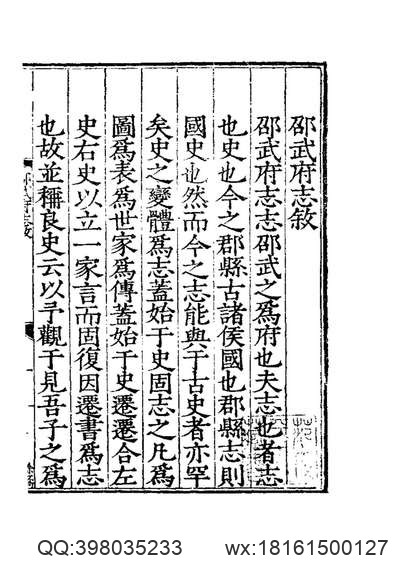 邵武府志敘
邵武府志志邵武之爲府也夫志也者志
也史也今之郡縣古諸侯國也郡縣志則
國史也然而今之志能與于古史者亦罕
矣史之變體爲志蓋始于史固志之凡爲
圖爲表爲世家爲傳蓋始于史遷遷合左
史右史以立一家言而固復因遷書爲志
也故並稱良史云以予觀于見吾子之爲
QQ:398035233 wx:18161500127